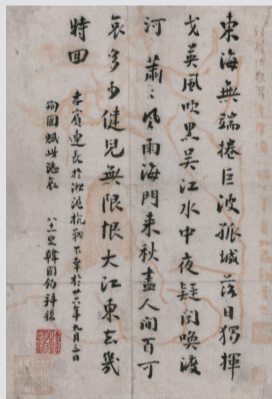 東海無端捲巨波孤城落日獨揮
戈英風吹黑吳江水中夜疑聞喚渡
河　蕭〻風雨海門來秋盡人間百可
哀多少健兒無限恨大江東去幾
時回
李賓連長於淞滬抗戰不幸於廿六年九月三日
殉國賦此誌哀
八十一叟韓國鈞拜輓